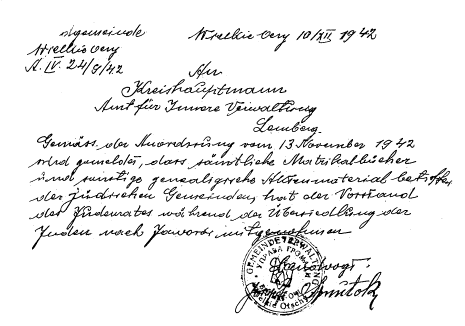 Wielkie Oczy 10/XII 1942
Wielkie Oczy
A. IV. 24/8/42
An
Kreishauptmann
Amt für Innere Verwaltung
Lemberg.
Gemäss der Anordnung vom 13 November 1942
wird gemeldet, dass sämtliche Matrikalbücher
und sonstige Aktenmaterial
der jüdischen Gemeinden, hat der Vorstand
des Judenrates während der Übersiedlung der
Juden nach Jaworow mitgenommen
GEMEINDEVERWALTUNG
УПРАВА ГРОМ